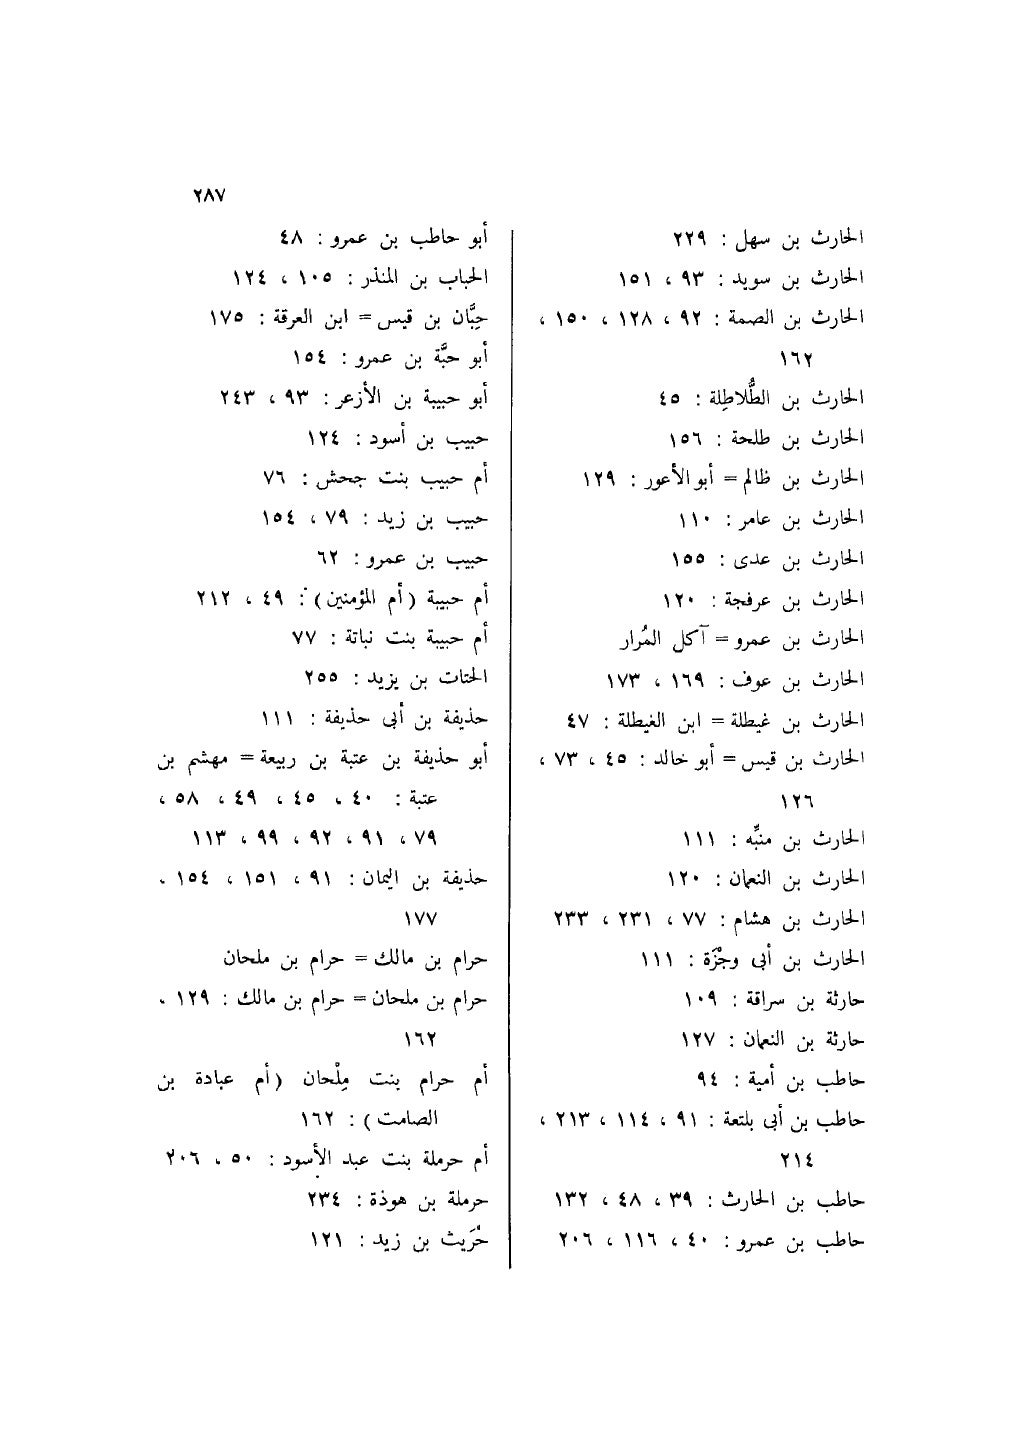 ٢٨٧
الحارث بن سهل : ٢٢٩
الحارث بن سويد : ٩٣ ، ١٥١
الحارث بن الصمة : ٩٢ ، ١٢٨ ، ١٥٠ ،
١٦٢
الحارث بن الطُّلاطِلة : ٤٥
الحارث بن طلحة : ١٥٦
الحارث بن ظالم = أبو الأعور : ١٢٩
الحارث بن عامر : ١١٠
الحارث بن عدى : ١٥٥
الحارث بن عرفجة : ١٢٠
الحارث بن عمرو = آكل المُرار
الحارث بن عوف : ١٦٩ ، ١٧٣
الحارث بن غيطلة = ابن الغيطلة : ٤٧
الحارث بن قيس = أبو خالد : ٤٥ ، ٧٣ ،
١٢٦
الحارث بن منبِّه : ١١١
الحارث بن النعمان : ١٢٠
الحارث بن هشام : ٧٧ ، ٢٣١ ، ٢٣٣
الحارث بن أبى وجْزَة : ١١١
حارثة بن سراقة : ١٠٩
حارثة بن النعمان : ١٢٧
حاطب بن أمية : ٩٤
حاطب بن أبى بلتعة : ٩١ ، ١١٤ ، ٢١٣ ،
٢١٤
حاطب بن الحارث : ٣٩ ، ٤٨ ، ١٣٢
حاطب بن عمرو : ٤٠ ، ١١٦ ، ٢٠٦
أبو حاطب بن عمرو : ٤٨
الحباب بن المنذر : ١٠٥ ، ١٢٤
حِبَّان بن قيس = ابن العرقة : ١٧٥
أبو حبَّة بن عمرو : ١٥٤
أبو حبيبة بن الأزعر : ٩٣ ، ٢٤٣
حبيب بن أسود : ١٢٤
أم حبيب بنت جحش : ٧٦
حبيب بن زيد : ٧٩ ، ١٥٤
حبيب بن عمرو : ٦٢
أم حبيبة (أم المؤمنين) : ٤٩ ، ٢١٢
أم حبيبة بنت نباتة : ٧٧
الحتات بن يزيد : ٢٥٥
حذيفة بن أبى حذيفة : ١١١
أبو حذيفة بن عتبة بن ربيعة = مهشم بن
عتبة : ٤٠ ، ٤٥ ، ٤٩ ، ٥٨ ،
٧٩ ، ٩١ ، ٩٢ ، ٩٩ ، ١١٣
حذيفة بن اليمان : ٩١ ، ١٥١ ، ١٥٤ ،
١٧٧
حرام بن مالك = حرام بن ملحان
حرام بن ملحان = حرام بن مالك : ١٢٩ ،
١٦٢
أم حرام بنت مِلْحان (أم عبادة بن
الصامت) : ١٦٢
أم حرملة بنت عبد الأسود : ٥٠ ، ٢٠٦
حرملة بن هوذة : ٢٣٤
حُرَيث بن زيد : ١٢١